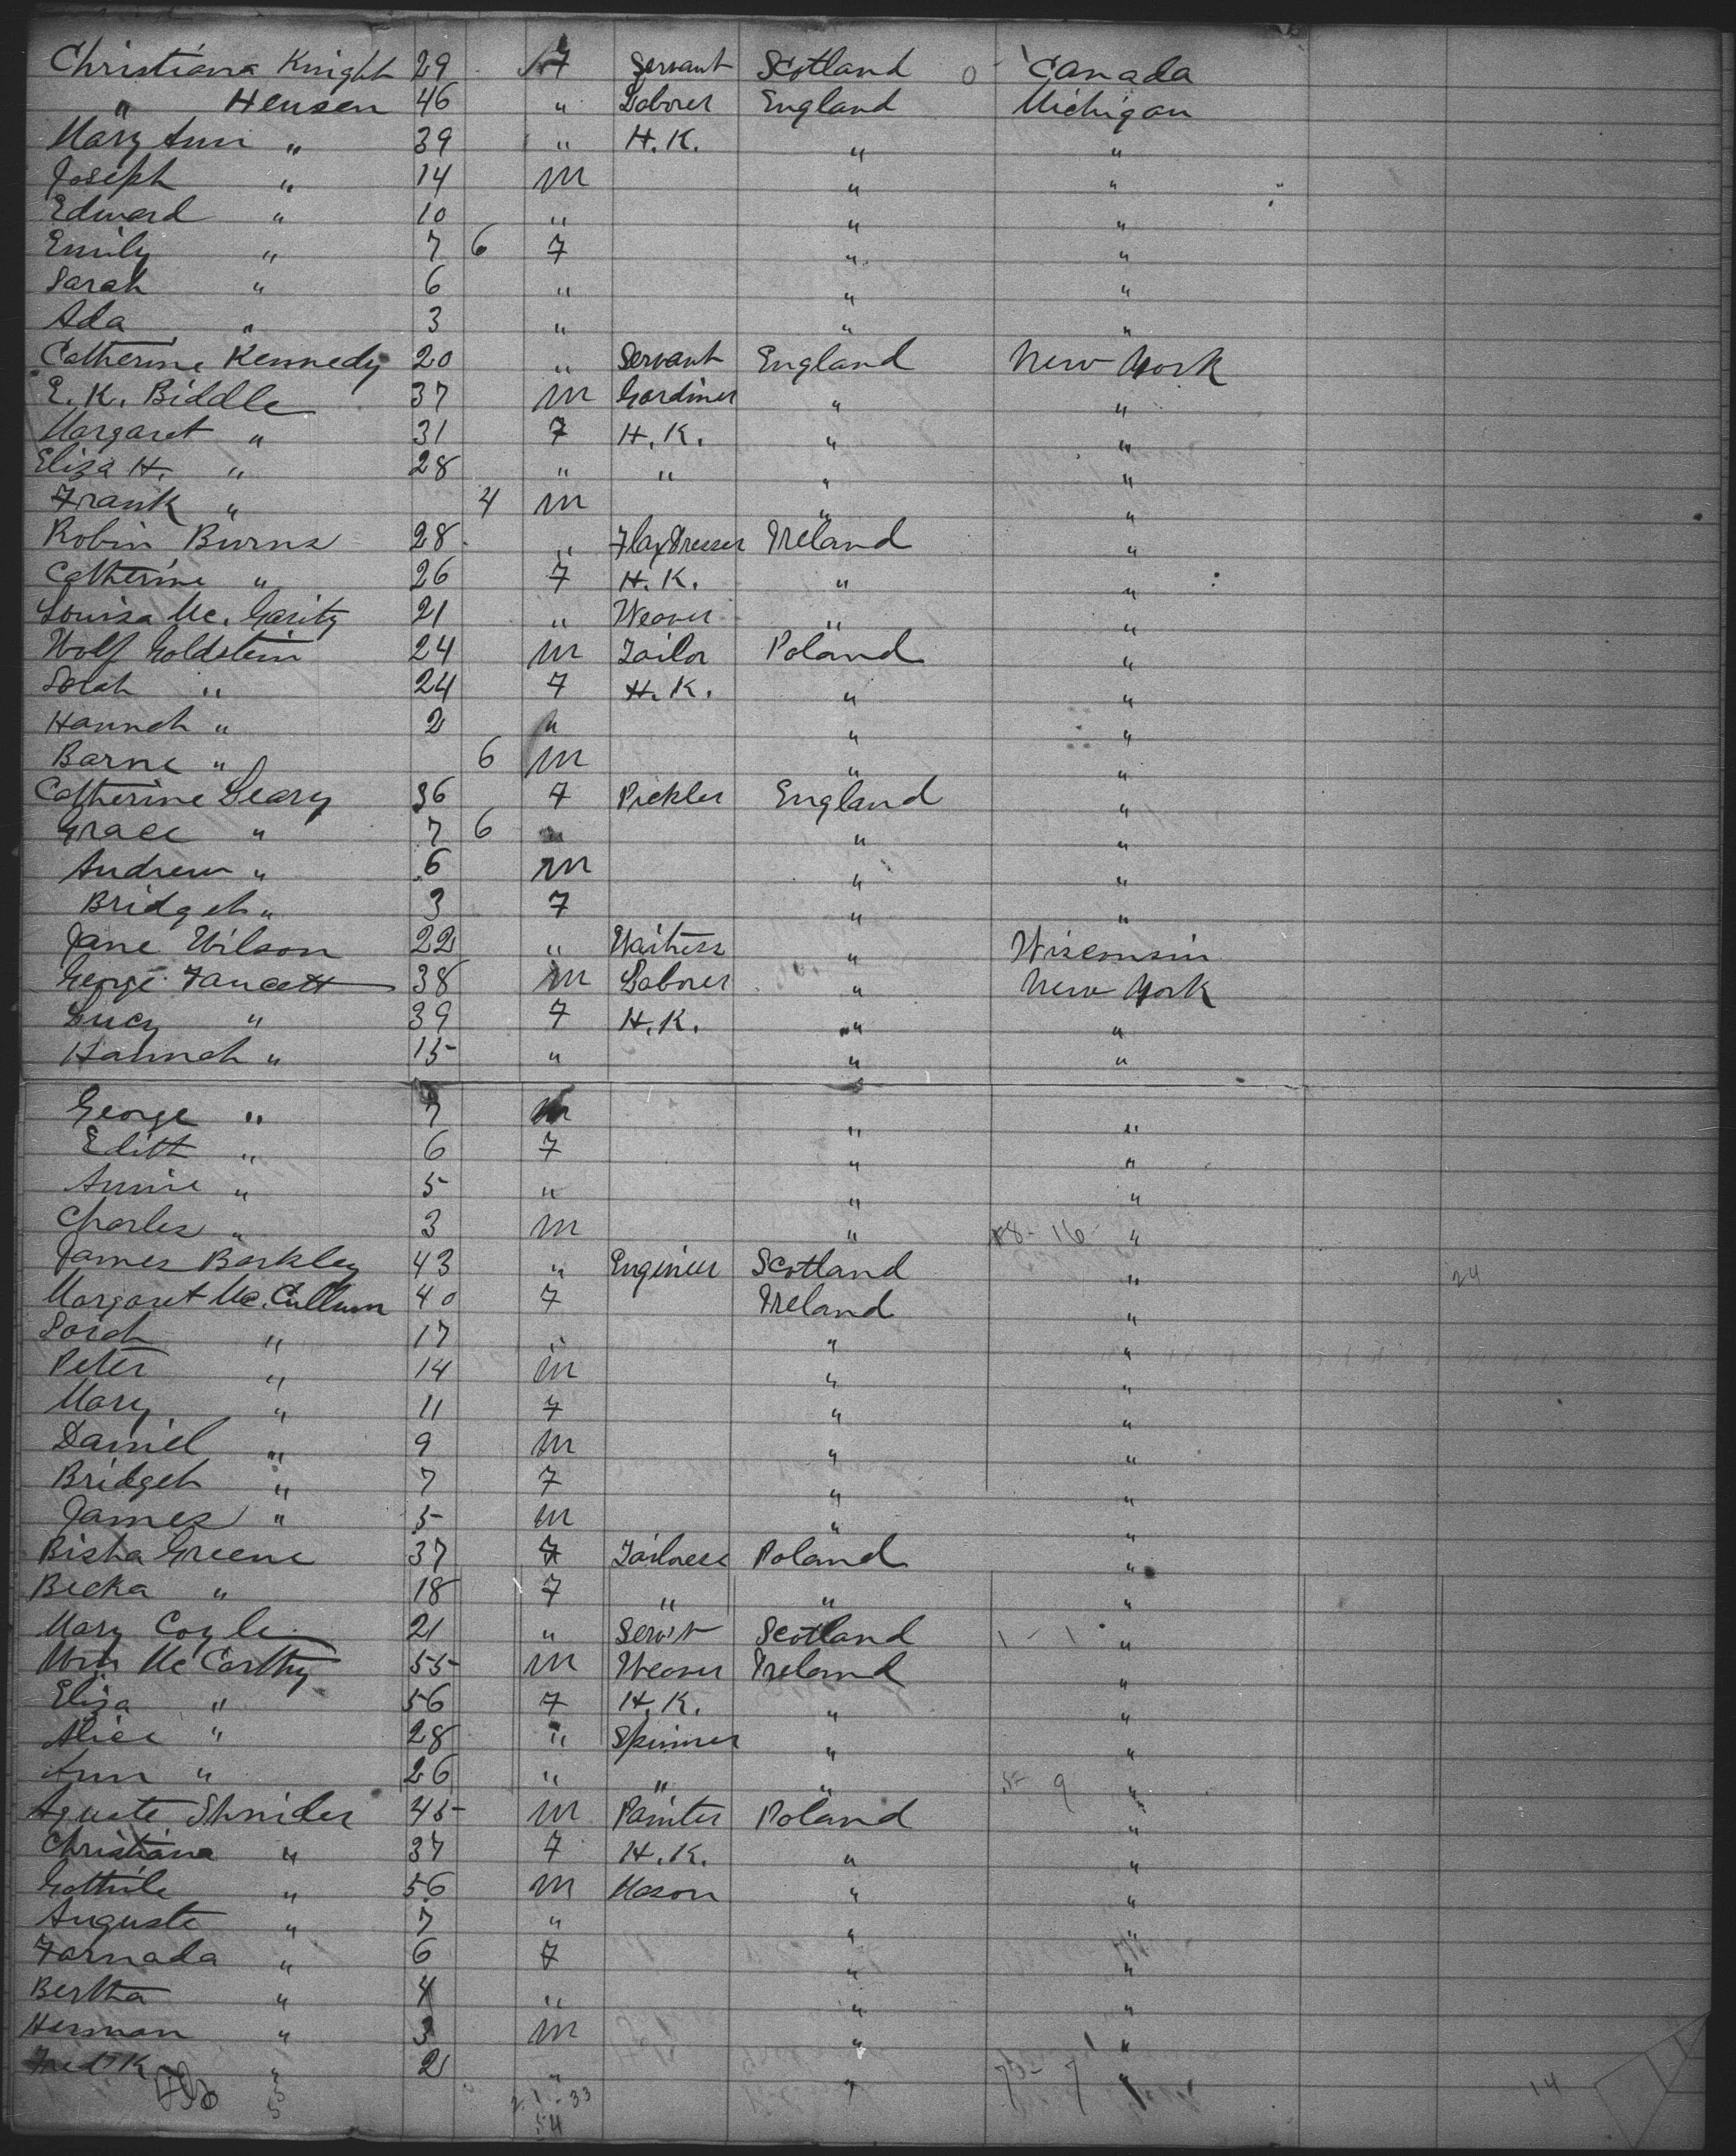 Christiana Knight 29 7 Servant Scotland 0 Canada
" Hensen 46 " Laborer England Michigan
Mary Ann " 39 " H.K. " "
Joseph " 14 m " "
Edward " 10 " " "
Emily " 7 6 7 " "
Sarah " 6 " " "
Ada " 3 " " "
Catherine Kennedy 20 " Servant England New York
E. K. Biddle 37 m Gardiner " "
Margaret " 31 7 H.K. " "
Eliza H. " 28 " " " "
Frank " 4 m " "
Robin Burns 28 " Flax Dresser Ireland "
Catherine " 26 7 H.K. " "
Louisa Mc. Garity 21 " Weaver " "
Wolf Goldstein 24 m Tailor Poland "
Sarah " 24 7 H.K. " "
Hannah " 2 " " "
Barne " 6 m " "
Catherine Leary 36 7 Pickler England "
Grace " 7 6 " " "
Andrew " 6 m " "
Bridget " 3 7 " "
Jane Wilson 22 " Waitress " Wisconsin
George Faucett 38 m Laborer " New York
Lucy " 39 7 H.K. " "
Hannah " 15 " " "
George " 7 m " "
Edith " 6 7 " "
Annie " 5 " " "
Charles " 3 m " 18-16 "
James Barkley 43 " Engineer Scotland " 24
Margaret Mc. Cullum 40 7 Ireland "
Sarah " 17 " " "
Peter " 14 m " "
Mary " 11 7 " "
Daniel " 9 m " "
Bridget " 7 7 " "
James " 5 m " "
Bisha Greene 37 7 Tailoress Poland "
Becka " 18 7 " " "
Mary Coyle 21 " Serv't Scotland 1-1 "
Wm Mc Carthy 55 m Weaver Ireland "
Eliza " 56 7 H.K. " "
Alice " 28 " Spinner " "
Ann " 26 " " " 9 "
Aguste Shnider 45 m Painter Poland "
Christiana " 37 7 H.K. " "
Gothile " 56 m Mason " "
Auguste " 7 " " "
Farnada " 6 7 " "
Bertha " 4 " " "
Herman " 3 m " "
Fred'k " 2 " " 7-7 "
14
33
54